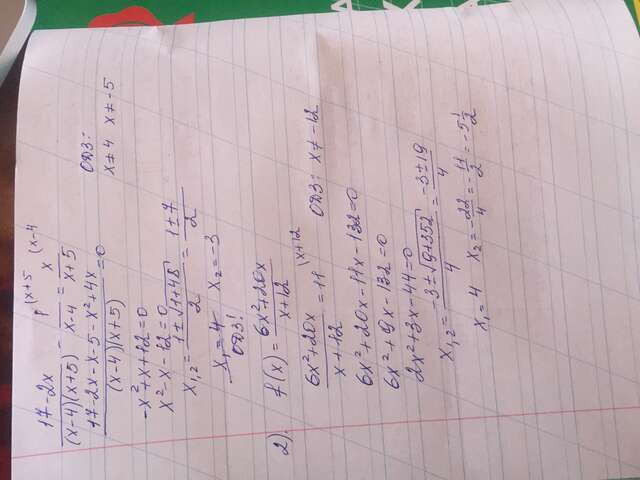 (17-2x)/((x-4)(x+5)) - 1/(x-4) \(x+5 = x/(x+5) \(x-4
(17-2x-x-5-x²+4x)/((x-4)(x+5)) = 0
ОДЗ:
x≠4 x≠-5
-x²+x+12=0
x²-x-12=0
x₁,₂ = (1±√(1+48))/2 = (1±7)/2
x₁=4 x₂=-3
ОДЗ!
2). f(x) = (6x²+20x)/(x+12)
(6x²+20x)/(x+12) = 11 \(x+12 ОДЗ: x≠-12
6x²+20x-11x-132=0
6x²+9x-132=0
2x²+3x-44=0
x₁,₂ = (-3±√(9+352))/4 = (-3±19)/4
x₁=4 x₂=-22/4=-11/2=-5 1/2